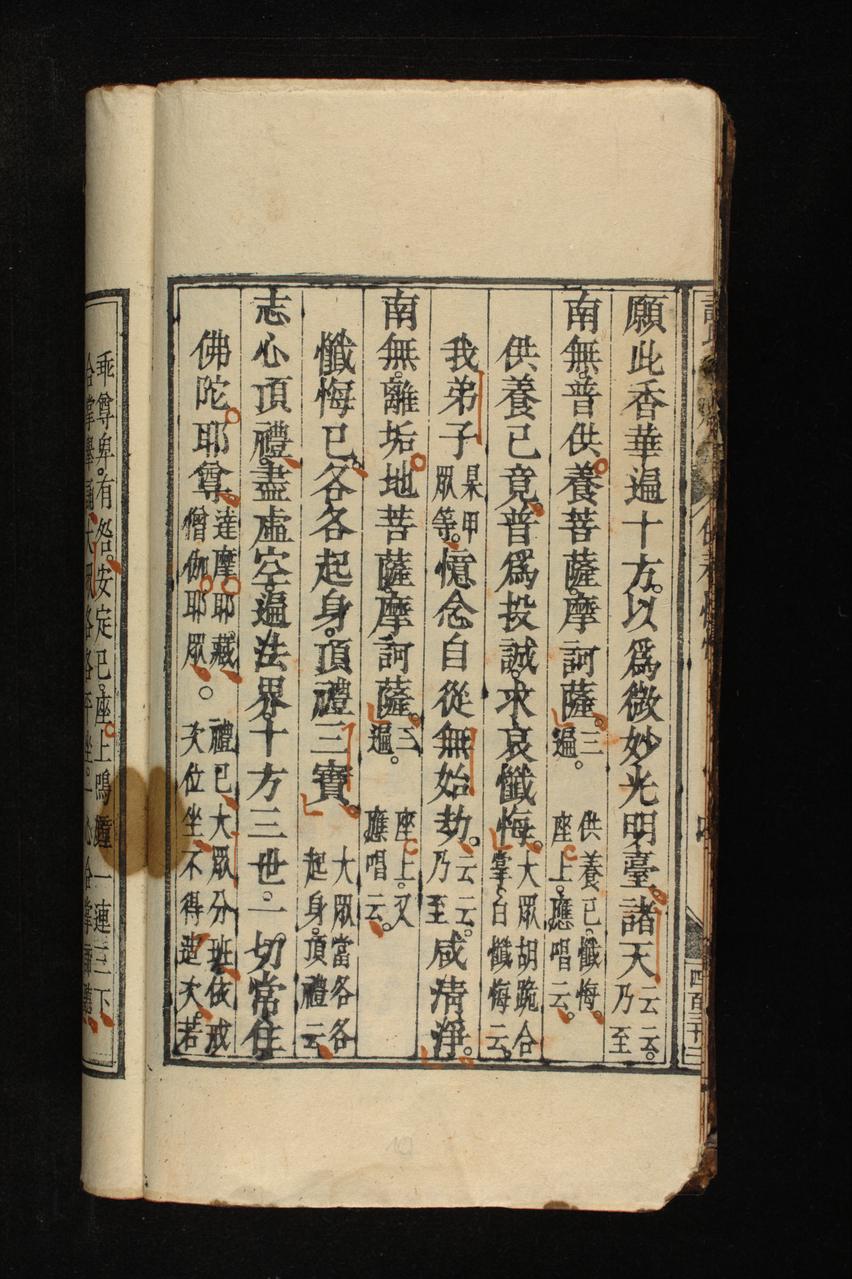 四百三十三
願此香華遍十方。以爲微妙光明臺。諸天云云。乃至
南無。普供養菩薩。摩訶薩。三遍。供養已。懺悔。座上。應唱云。
供養已竟。普爲投誠。求哀懺悔。大眾胡跪合掌。白懺悔云。
我弟子某甲眾等。憶念自從無始劫。云云。乃至咸清淨。
南無。離垢地菩薩。摩訶薩。三遍。座上。又應唱云。
懺悔已。各各起身。頂禮三寶。大眾當各各起身。頂禮云
志心頂禮。盡虛空遍法界。十方三世。一切常住
佛陀。耶尊達摩。耶藏。僧伽。耶眾。○禮已。大眾分班。依戒次位坐。不得造次。若
乖尊卑。有咎。安定已。座上鳴鐘一連三下